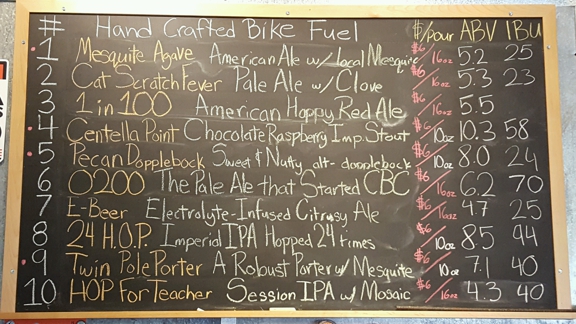 # Hand Crafted Bike Fuel $/pour ABV IBU
1 Mesquite Agave American Ale w/ Local Mesquite $6/16oz 5.2 25
2 Cat Scratch Fever Pale Ale w/ Clove $6/16oz 5.3 23
3 1 in 100 American Hoppy Red Ale $6/16oz 5.5
4 Centella Point Chocolate Raspberry Imp. Stout $6/10oz 10.3 58
5 Pecan Dopplebock Sweet & Nutty alt-dopplebock $6/10oz 8.0 24
6 O200 The Pale Ale that Started CBC $6/16oz 6.2 70
7 E-Beer Electrolyte-Infused Citrusy Ale $6/16oz 4.7 25
8 24 H.O.P. Imperial IPA Hopped 24 times $6/10oz 8.5 44
9 Twin Pole Porter A Robust Porter w/ Mesquite $6/10oz 7.1 40
10 HOP For Teacher Session IPA w/ Mosaic $6/16oz 4.3 40